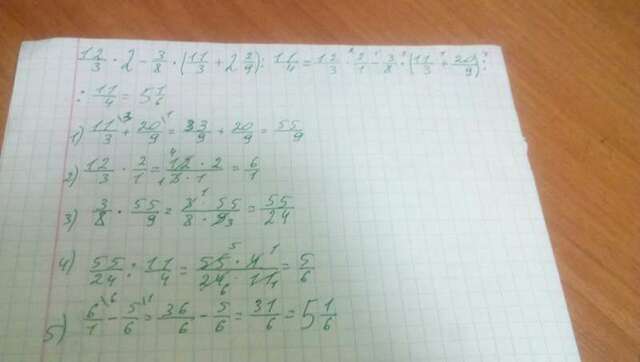 12/3 · 2 - 3/8 · (11/3 + 2 2/9) : 11/4 = 12/3 · 2/1 - 3/8 · (11/3 + 20/9) :
: 11/4 = 5 1/6
1) 11/3 + 20/9 = 33/9 + 20/9 = 55/9
2) 12/3 · 2/1 = 12 · 2/3 · 1 = 6/1
3) 3/8 · 55/9 = 3 · 55/8 · 9 = 55/24
4) 55/24 : 11/4 = 55 · 4/24 · 11 = 5/6
5) 6/1 - 5/6 = 36/6 - 5/6 = 31/6 = 5 1/6